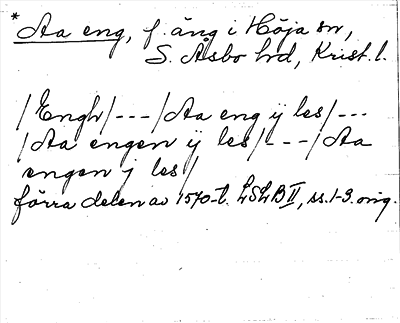 *Aa eng, f. äng i Höja sn,
S. Åsbo hd, Krist. l.
/Engh/---/Aa eng ÿ les/---
/Aa engen ÿ les/---/Aa
engen j les/
förra delen av 1570-t. LSLB II, ss. 1-3. orig.